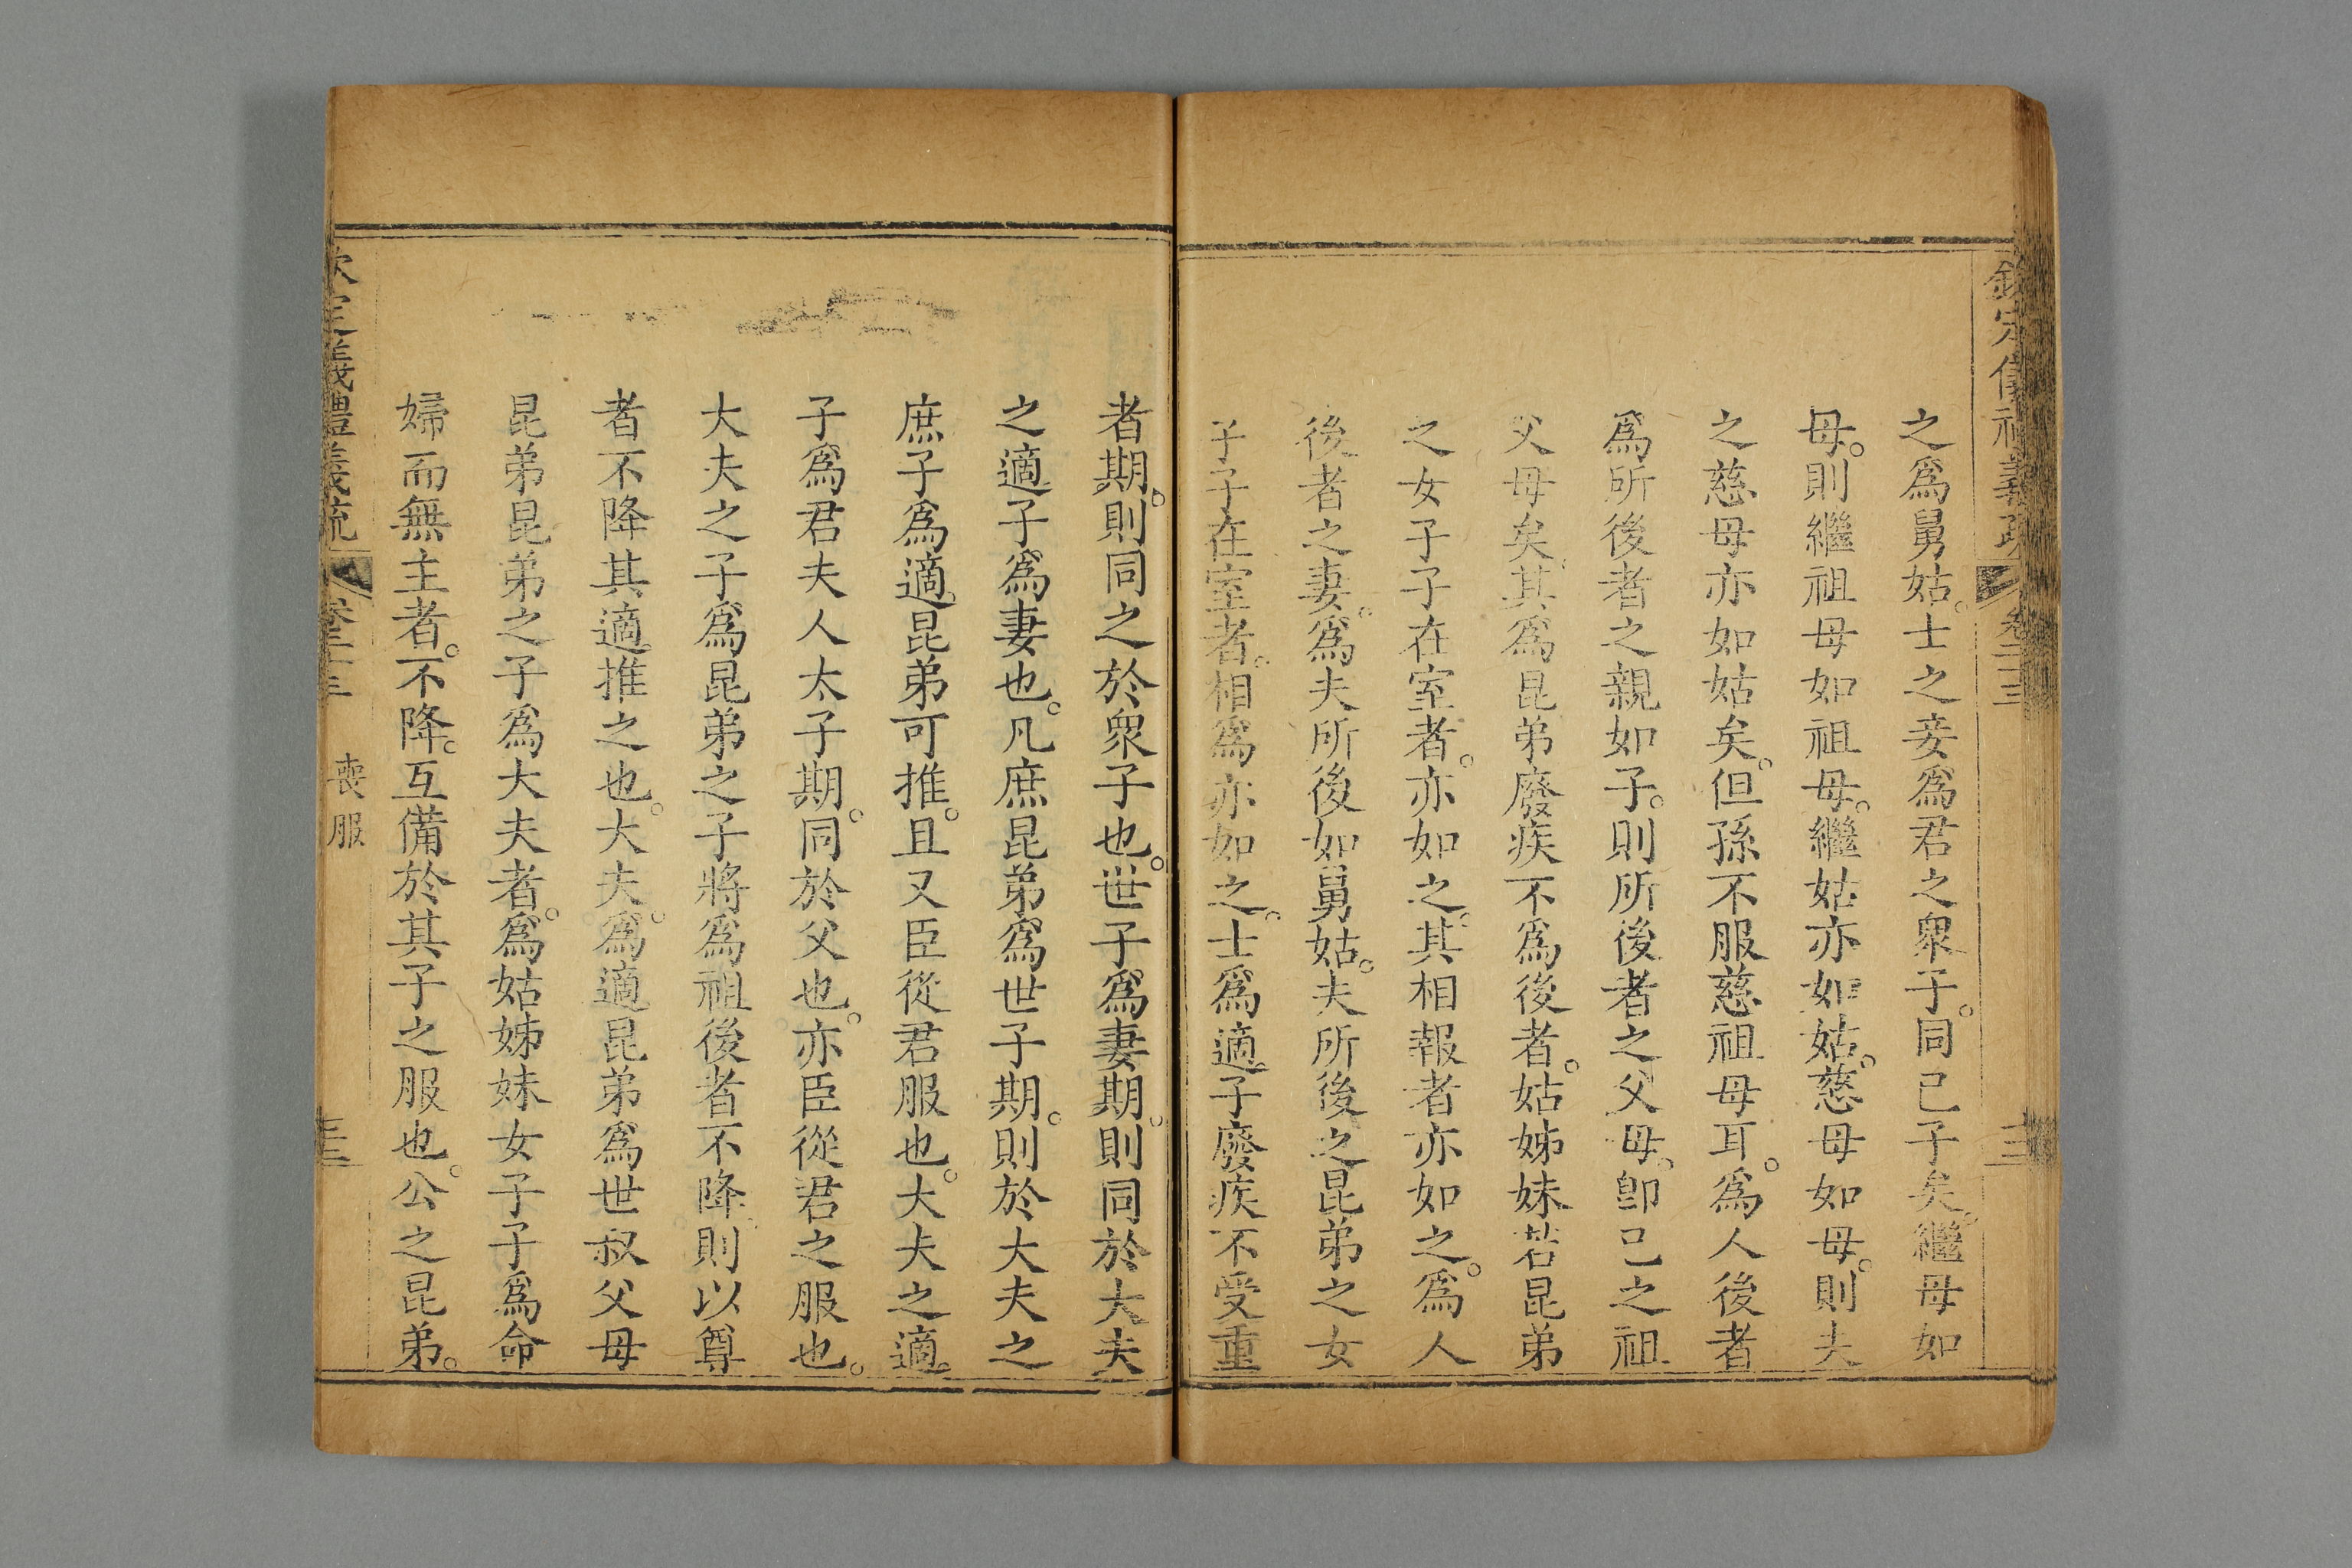 欽定儀禮義疏 卷二十三
之爲舅姑。士之妾爲君之衆子。同己子矣。繼母如
母。則繼祖母如祖母。繼姑亦如姑。慈母如母。則夫
之慈母亦如姑矣。但孫不服慈祖母耳。爲人後者
爲所後者之親如子。則所後者之父母。卽己之祖
父母矣。其爲昆弟廢疾不爲後者。姑姊妹若昆弟
之女子子在室者。亦如之。其相報者亦如之。爲人
後者之妻。爲夫所後如舅姑。夫所後之昆弟之女
子子在室者。相爲亦如之。士爲適子廢疾不受重
者期。則同之於衆子也。世子爲妻期。則同於大夫
之適子爲妻也。凡庶昆弟爲世子期。則於大夫之
庶子爲適昆弟可推。且又臣從君服也。大夫之適
子爲君夫人太子期。同於父也。亦臣從君之服也。
大夫之子爲昆弟之子將爲祖後者不降。則以尊
者不降其適推之也。大夫。爲適昆弟爲世叔父母
昆弟昆弟之子爲大夫者。爲姑姊妹女子子爲命
婦而無主者。不降。互備於其子之服也。公之昆弟。
欽定儀禮義疏 卷二十三 喪服